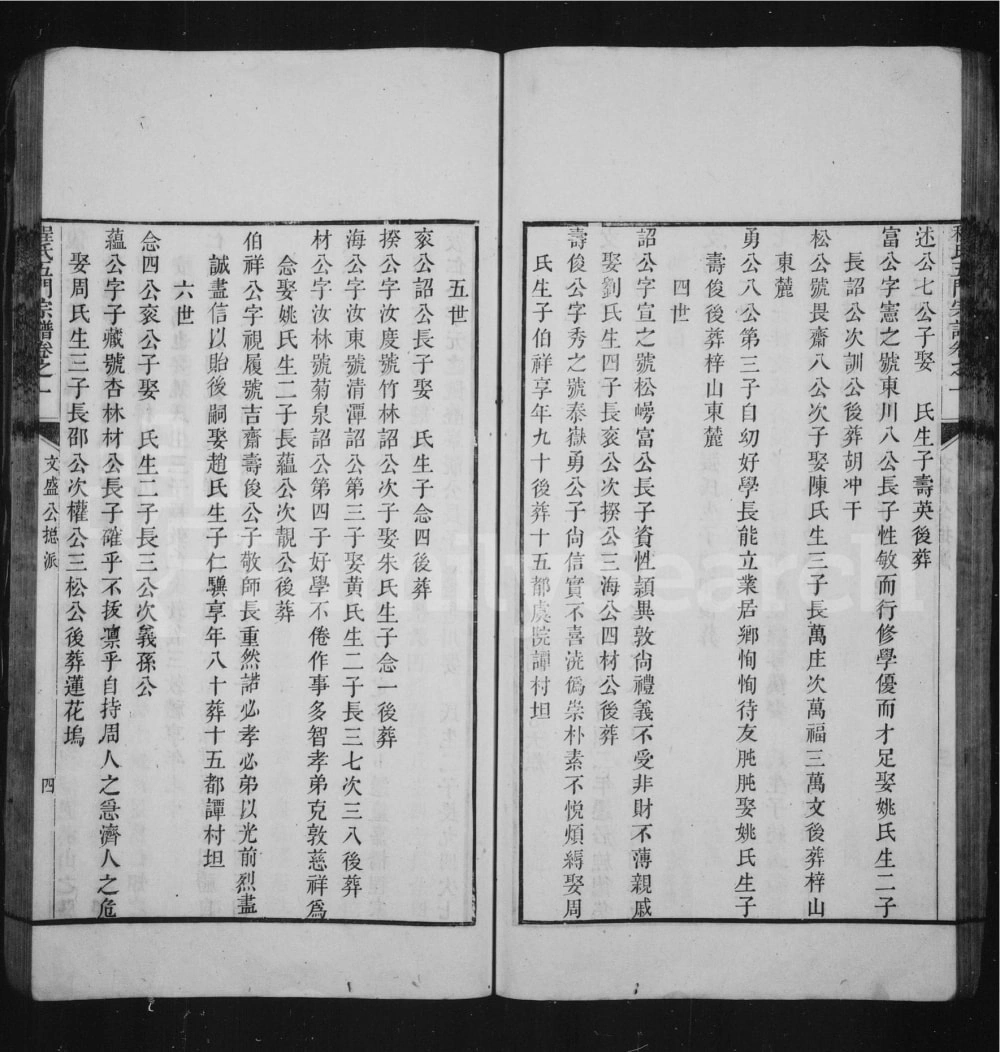 述公七公子娶　氏生子壽英後葬
富公字憲之號東川八公長子性敏而行修學優而才足娶姚氏生二子
長詔公次訓公後葬胡冲干
松公號畏齋八公次子娶陳氏生三子長萬庄次萬福三萬文後葬梓山
東麓
勇公八公第三子自幼好學長能立業居鄉恂恂待友肫肫娶姚氏生子
壽俊後葬梓山東麓
四世
詔公字宣之號松嶗富公長子資性頴異敦尙禮義不受非財不薄親戚
娶劉氏生四子長衮公次揆公三海公四材公後葬
壽俊公字秀之號泰嶽勇公子尙信實不喜澆僞崇朴素不悅煩縟娶周
氏生子伯祥享年九十後葬十五都虞院譚村坦
五世
衮公詔公長子娶　氏生子念四後葬
揆公字汝度號竹林詔公次子娶朱氏生子念一後葬
海公字汝東號清潭詔公第三子娶黄氏生二子長三七次三八後葬
材公字汝林號菊泉詔公第四子好學不倦作事多智孝弟克敦慈祥爲
念娶姚氏生二子長蘊公次靚公後葬
伯祥公字視履號吉齋壽俊公子敬師長重然諾必孝必弟以光前烈盡
誠盡信以貽後嗣娶趙氏生子仁驥享年八十葬十五都譚村坦
六世
念四公衮公子娶　氏生二子長三公次義孫公
蘊公字子藏號杏林材公長子確乎不拔凛乎自持周人之急濟人之危
娶周氏生三子長邵公次權公三松公後葬蓮花塢
程氏五門宗譜卷之一
文盛公摠派
四